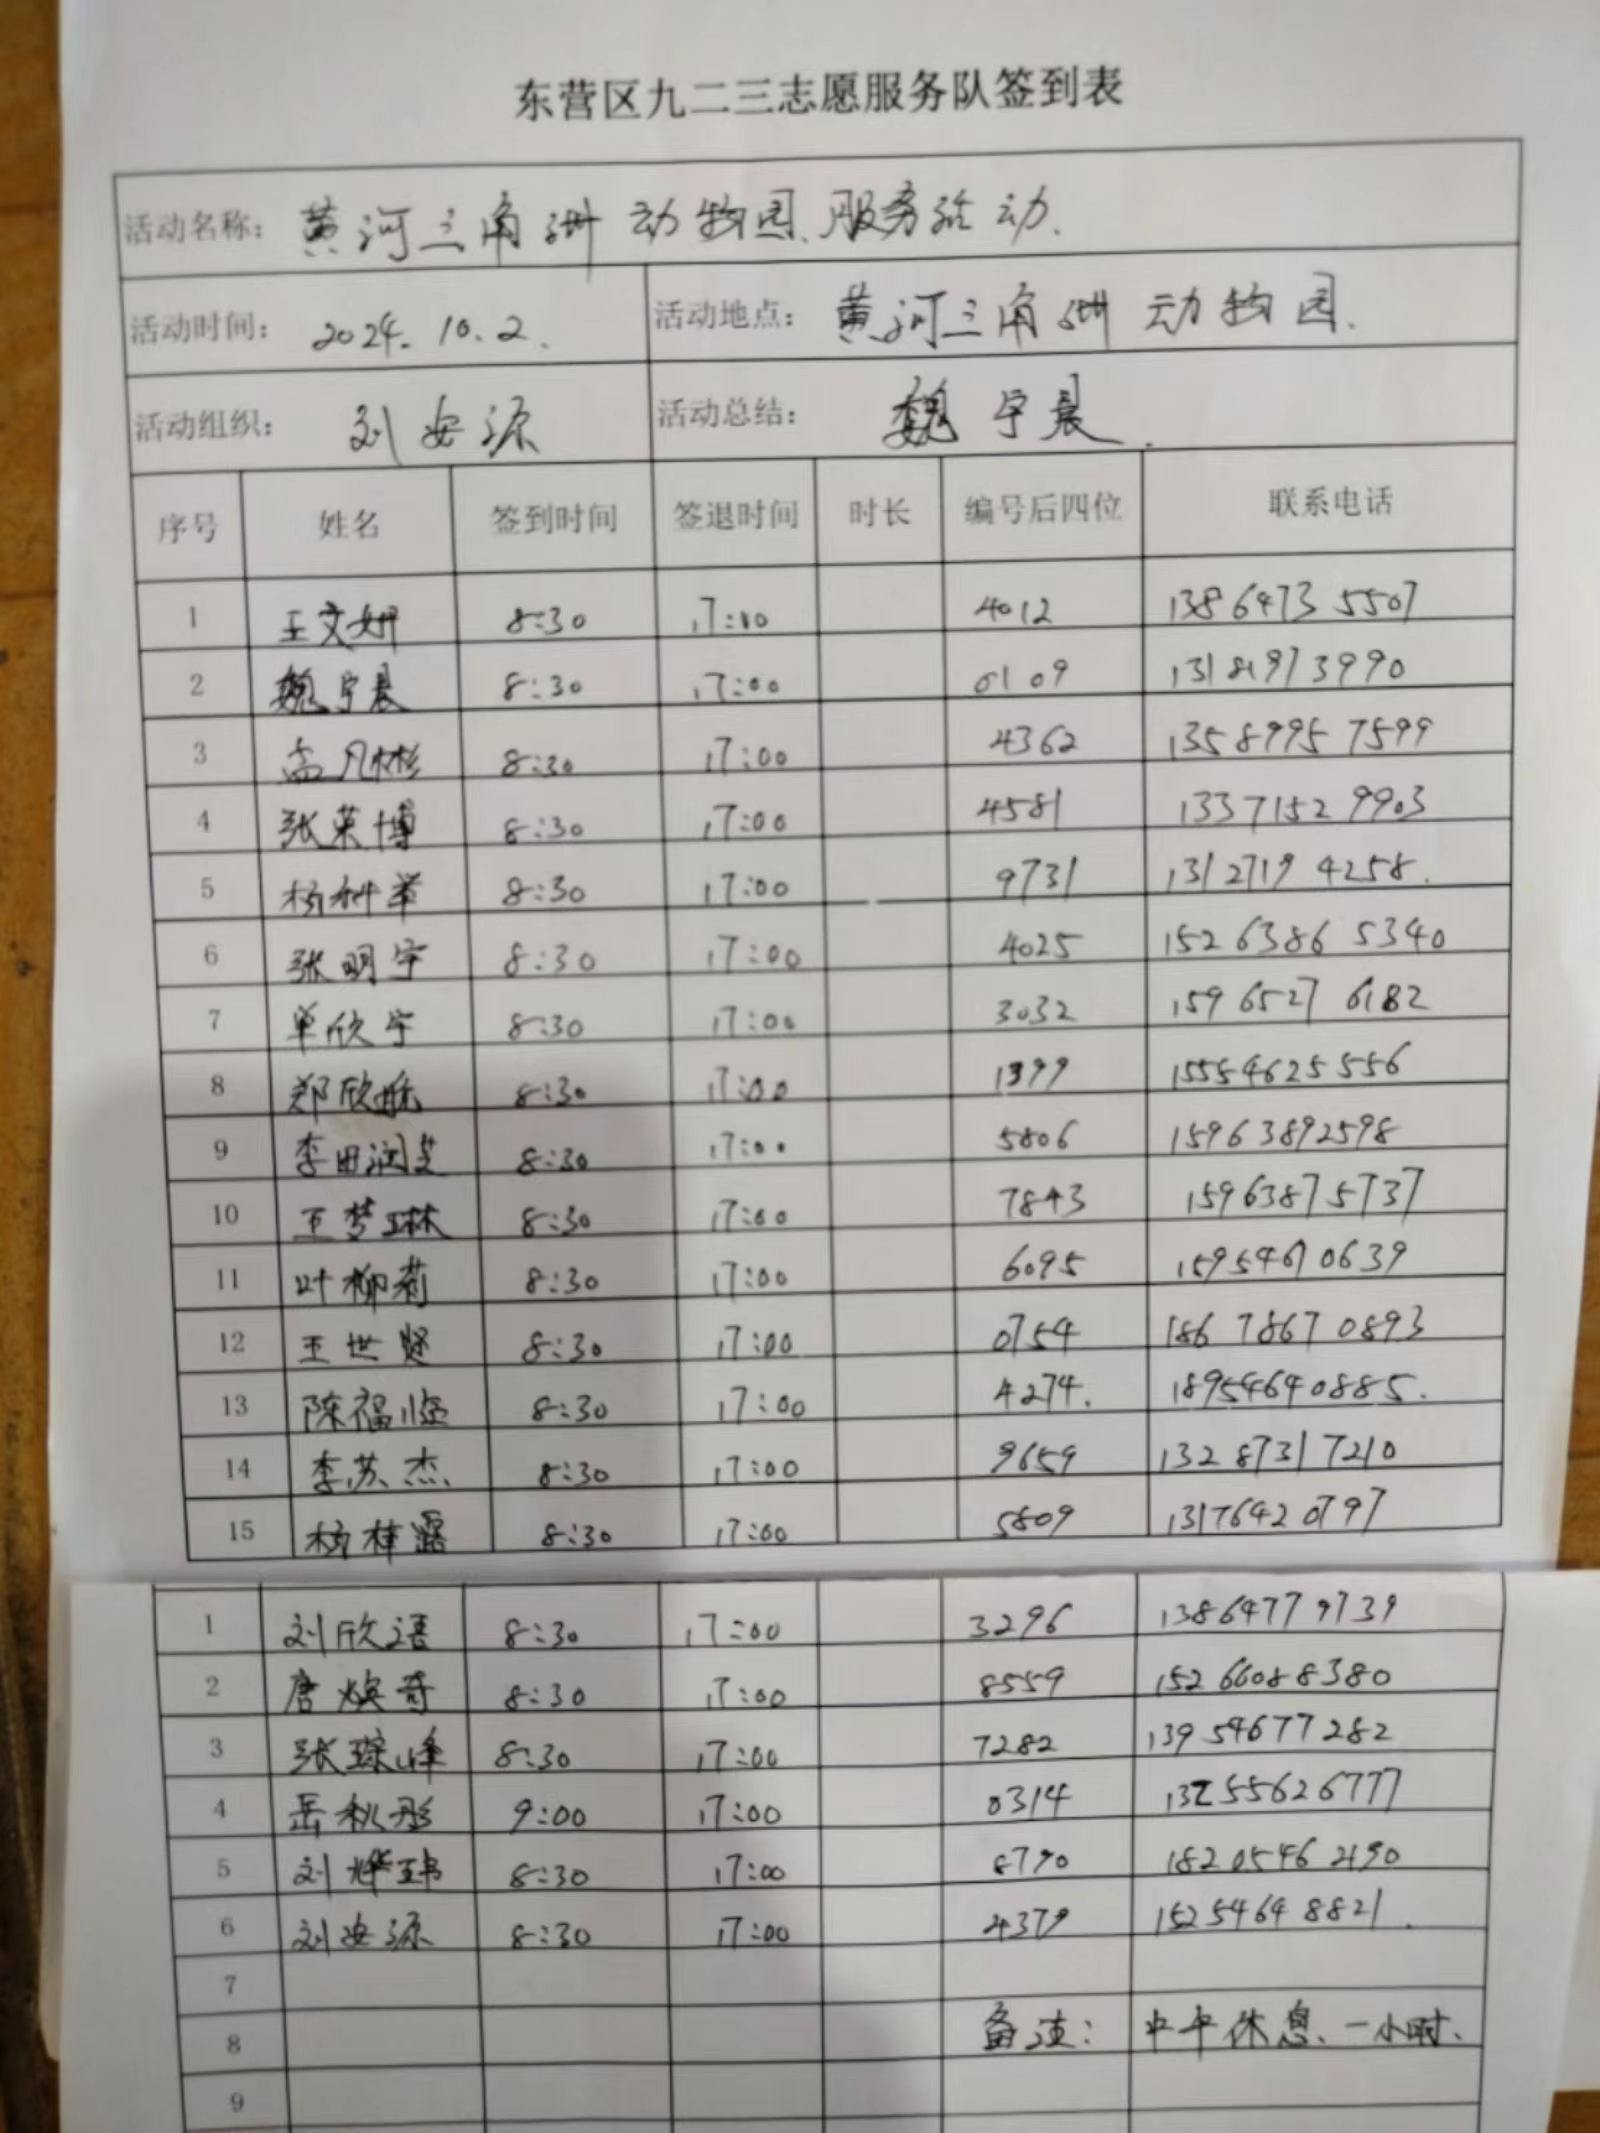 东营区九二三志愿服务队签到表
活动名称: 黄河三角洲动物园、服务活动.
活动时间: 2024. 10. 2. 活动地点: 黄河三角洲动物园.
活动组织: 刘安源 活动总结: 魏宇晨.
序号 姓名 签到时间 签退时间 时长 编号后四位 联系电话
1 王文妍 8:30 17:00 4012 13864735507
2 魏宇晨 8:30 17:00 0109 13181973990
3 孟凡彬 8:30 17:00 4362 13589957599
4 张荣博 8:30 17:00 4581 13371529903
5 杨科举 8:30 17:00 9731 13127194258.
6 张明宇 8:30 17:00 4025 15263865340
7 单欣宇 8:30 17:00 3032 15965276182
8 郑欣航 8:30 17:00 1399 15554625556
9 李田润芝 8:30 17:00 5806 15963892598
10 王梦琳 8:30 17:00 7843 15963875737
11 叶柳莉 8:30 17:00 6095 15954610639
12 王世贤 8:30 17:00 0754 18678670893
13 陈福临 8:30 17:00 4274. 18954640885.
14 李苏杰 8:30 17:00 9659 13287317210
15 杨梓潞 8:30 17:00 5809 13176420797
1 刘欣语 8:30 17:00 3296 13864779739
2 唐焕奇 8:30 17:00 8559 15266088380
3 张琮峰 8:30 17:00 7282 13954677282
4 岳秋彤 9:00 17:00 0314 13255626777
5 刘烨玮 8:30 17:00 8790 18205462190
6 刘安源 8:30 17:00 4379 15254648821.
7
8 备注: 中午休息、一小时、
9